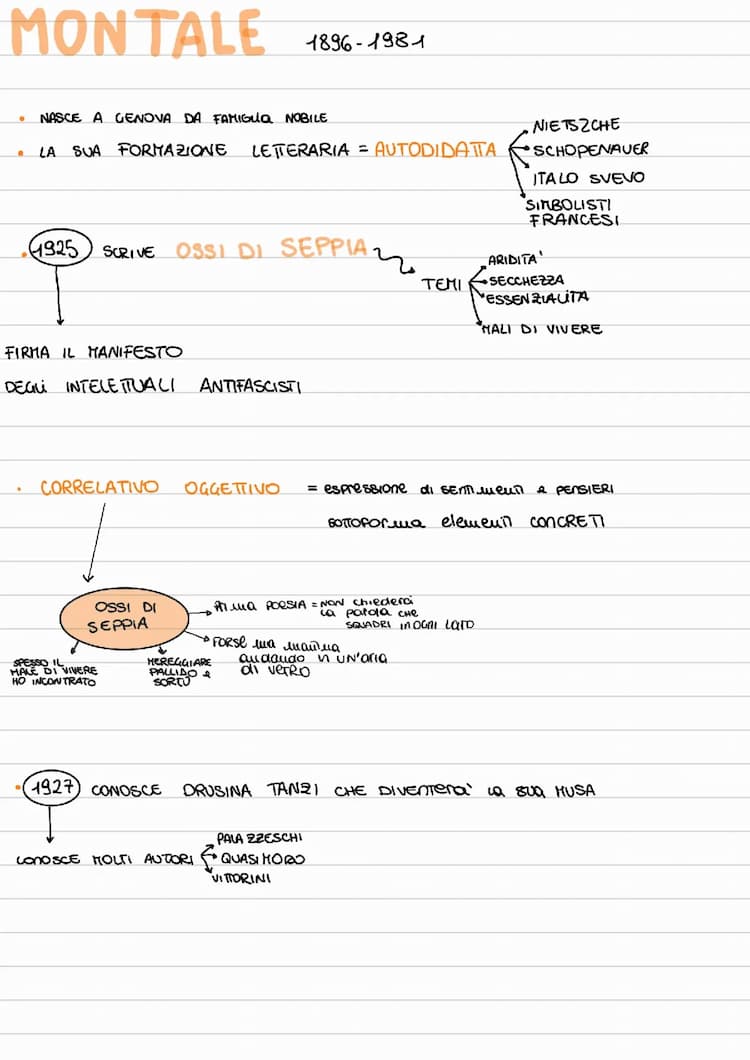 MONTALE 1896-1981
• NASCE A GENOVA DA FAMIGLIA NOBILE
• LA SUA FORMAZIONE LETTERARIA = AUTODIDATTA
NIETSZCHE
SCHOPENAUER
ITALO SVEVO
SIMBOLISTI
FRANCESI
• 1925 SCRIVE OSSI DI SEPPIA
TEMI
ARIDITA'
SECCHEZZA
ESSENZIALITA
MALI DI VIVERE
FIRMA IL MANIFESTO
DEGLI INTELETTUALI ANTIFASCISTI
• CORRELATIVO OGGETTIVO = espressione di sentimenti e PENSIERI
sottoforma elementi CONCRETI
OSSI DI
SEPPIA
Prima POESIA = NON chiederci
la parola che
SQUADRI in OGNI LATO
FORSE una mattina
andando in UN'aria
di vetro
SPESSO IL
MALE DI VIVERE
HO INCONTRATO
MEREGGIARE
PALLIDO e
SORTO
• 1927 CONOSCE DRUSINA TANZI CHE DIVENTERA' LA SUA MUSA
CONOSCE MOLTI AUTORI
PALAZZESCHI
QUASIMODO
VITTORINI